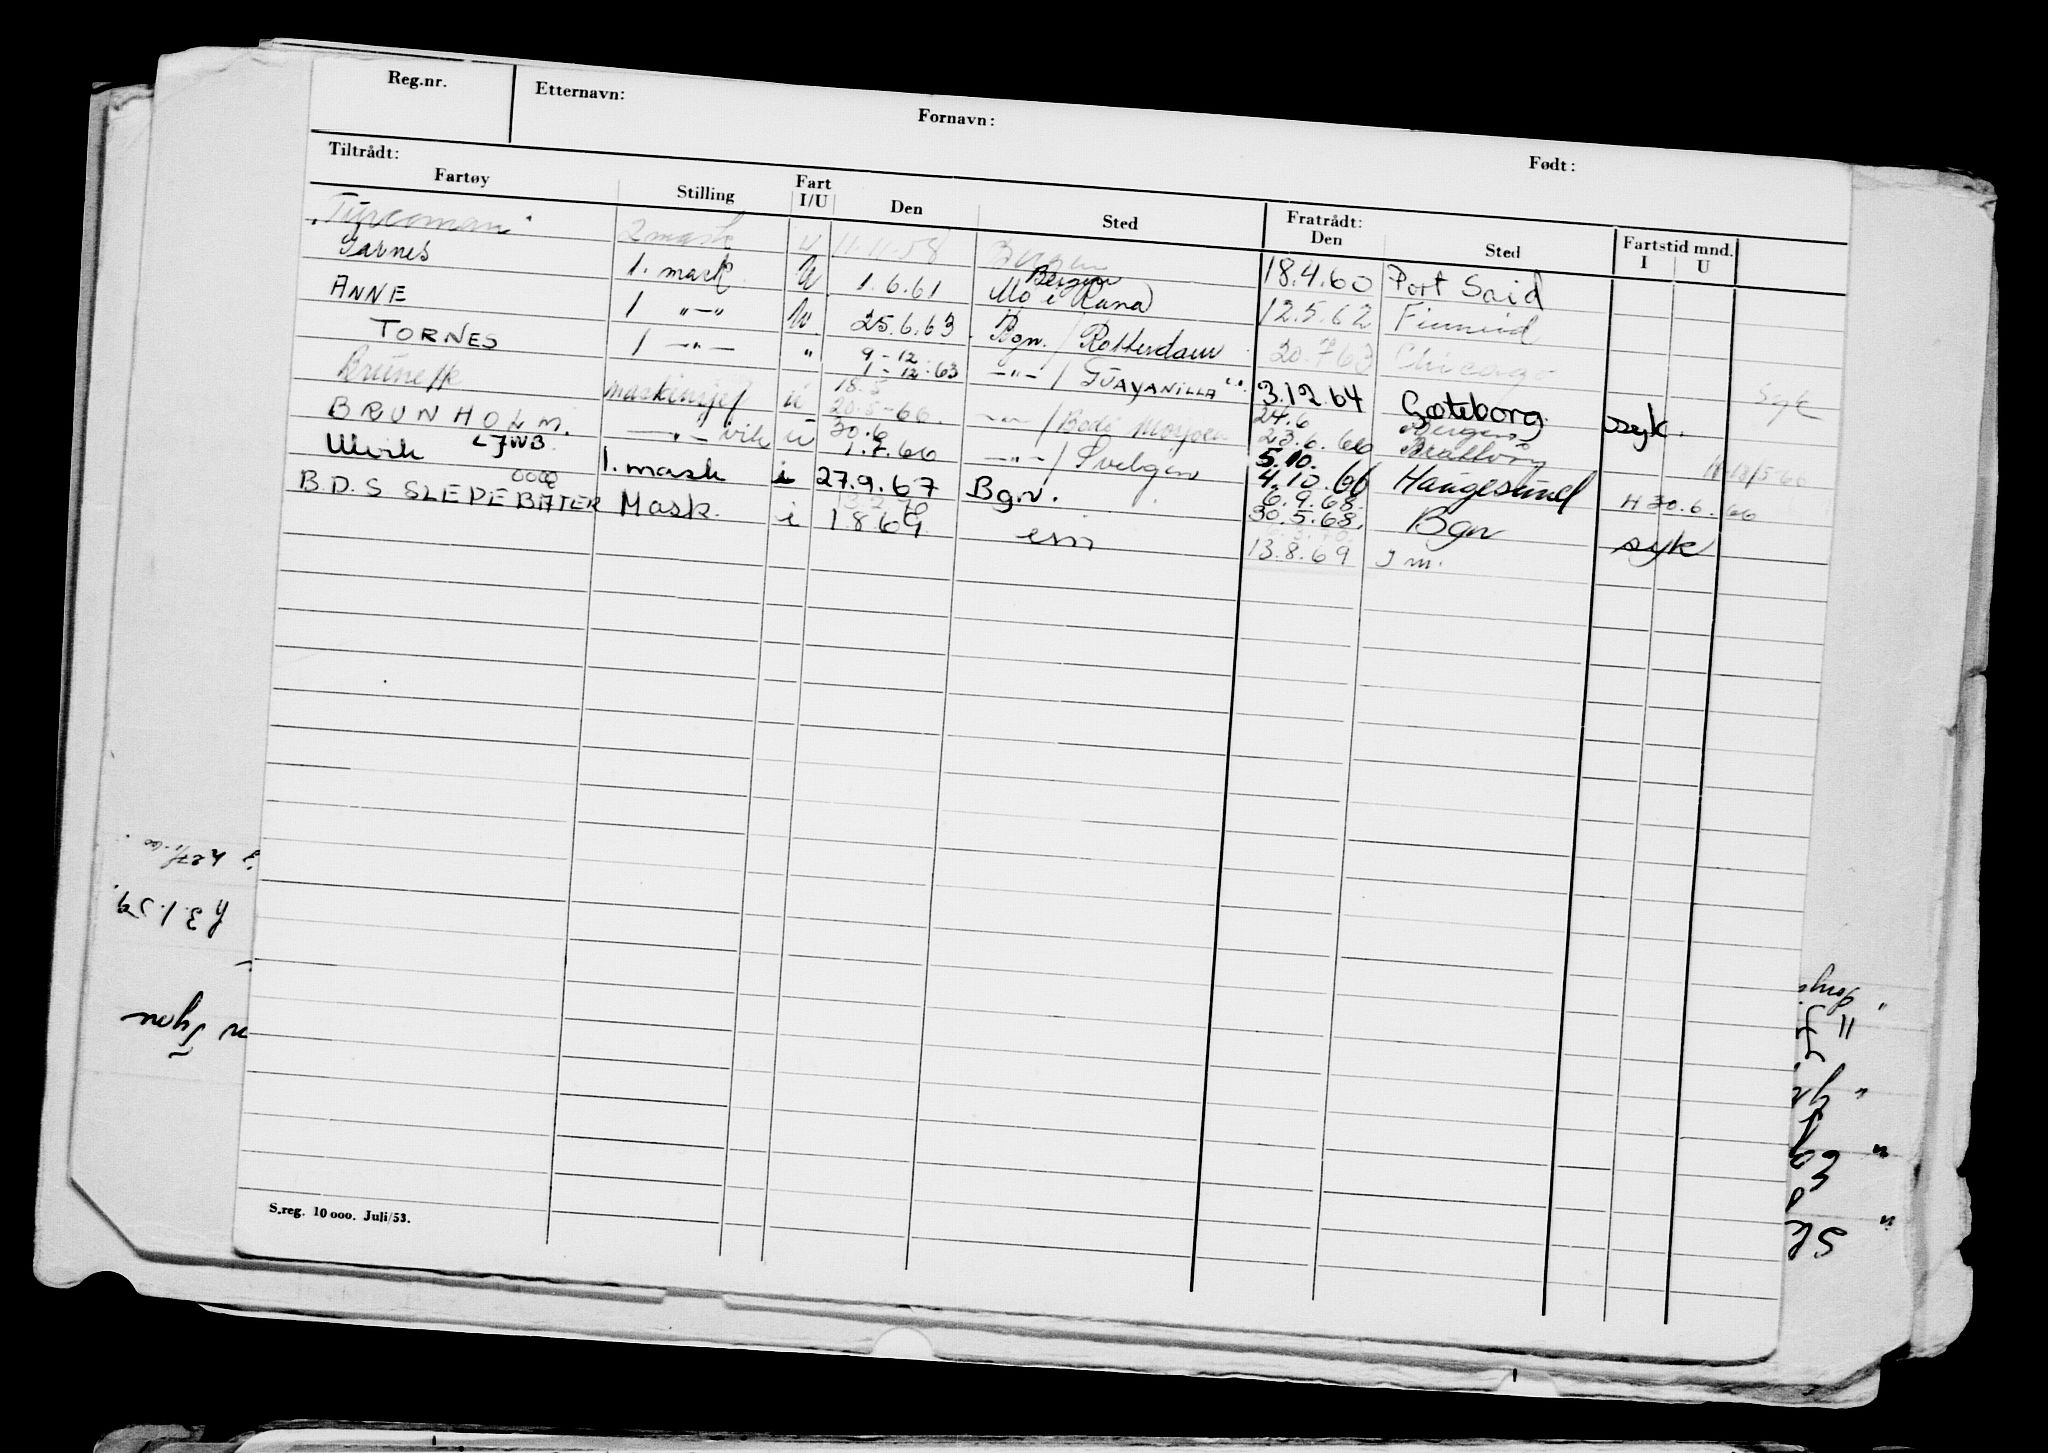 Reg.nr. Etternavn: Fornavn: Født:
Tiltrådt: Fratrådt: Fartstid mnd.
Fartøy Stilling Fart I/U Den Sted Den Sted I U
"Turcoman" 2 mask U 11.11.58 Bergen 18.4.60 Port Said
Garnes 1. mask. U 1.6.61 Bergen Mo i Rana 12.5.62
ANNE 1 -"- U 25.6.63 Bgn. / Rotterdam 20.7.63 Chicago Syk
TORNES 1 -"- " 9-12 1-12-63 -"- / GUAYANILLA 3.12.64 Gøteborg syk.
maskinsjef u 18.5 20.5-66. -"- / Bodø Mosjøen 24.6 23.6.66 Bergen Brattvåg
BRUNHOLM. LJWB -"- vik u 30.6 1.7.66 -"- / Svelgen 5.10. 4.10.66 Haugesund H 30.6.66
Ulvik 1. mask i 27.9.67 Bgn. 6.9.68. 30.5.68. Bgn syk
B.D.S SLEPEBÅTER 0000 Mask. i 1 8 69 13.8.69
S.reg. 10 000. Juli/53.
h 3.1.59